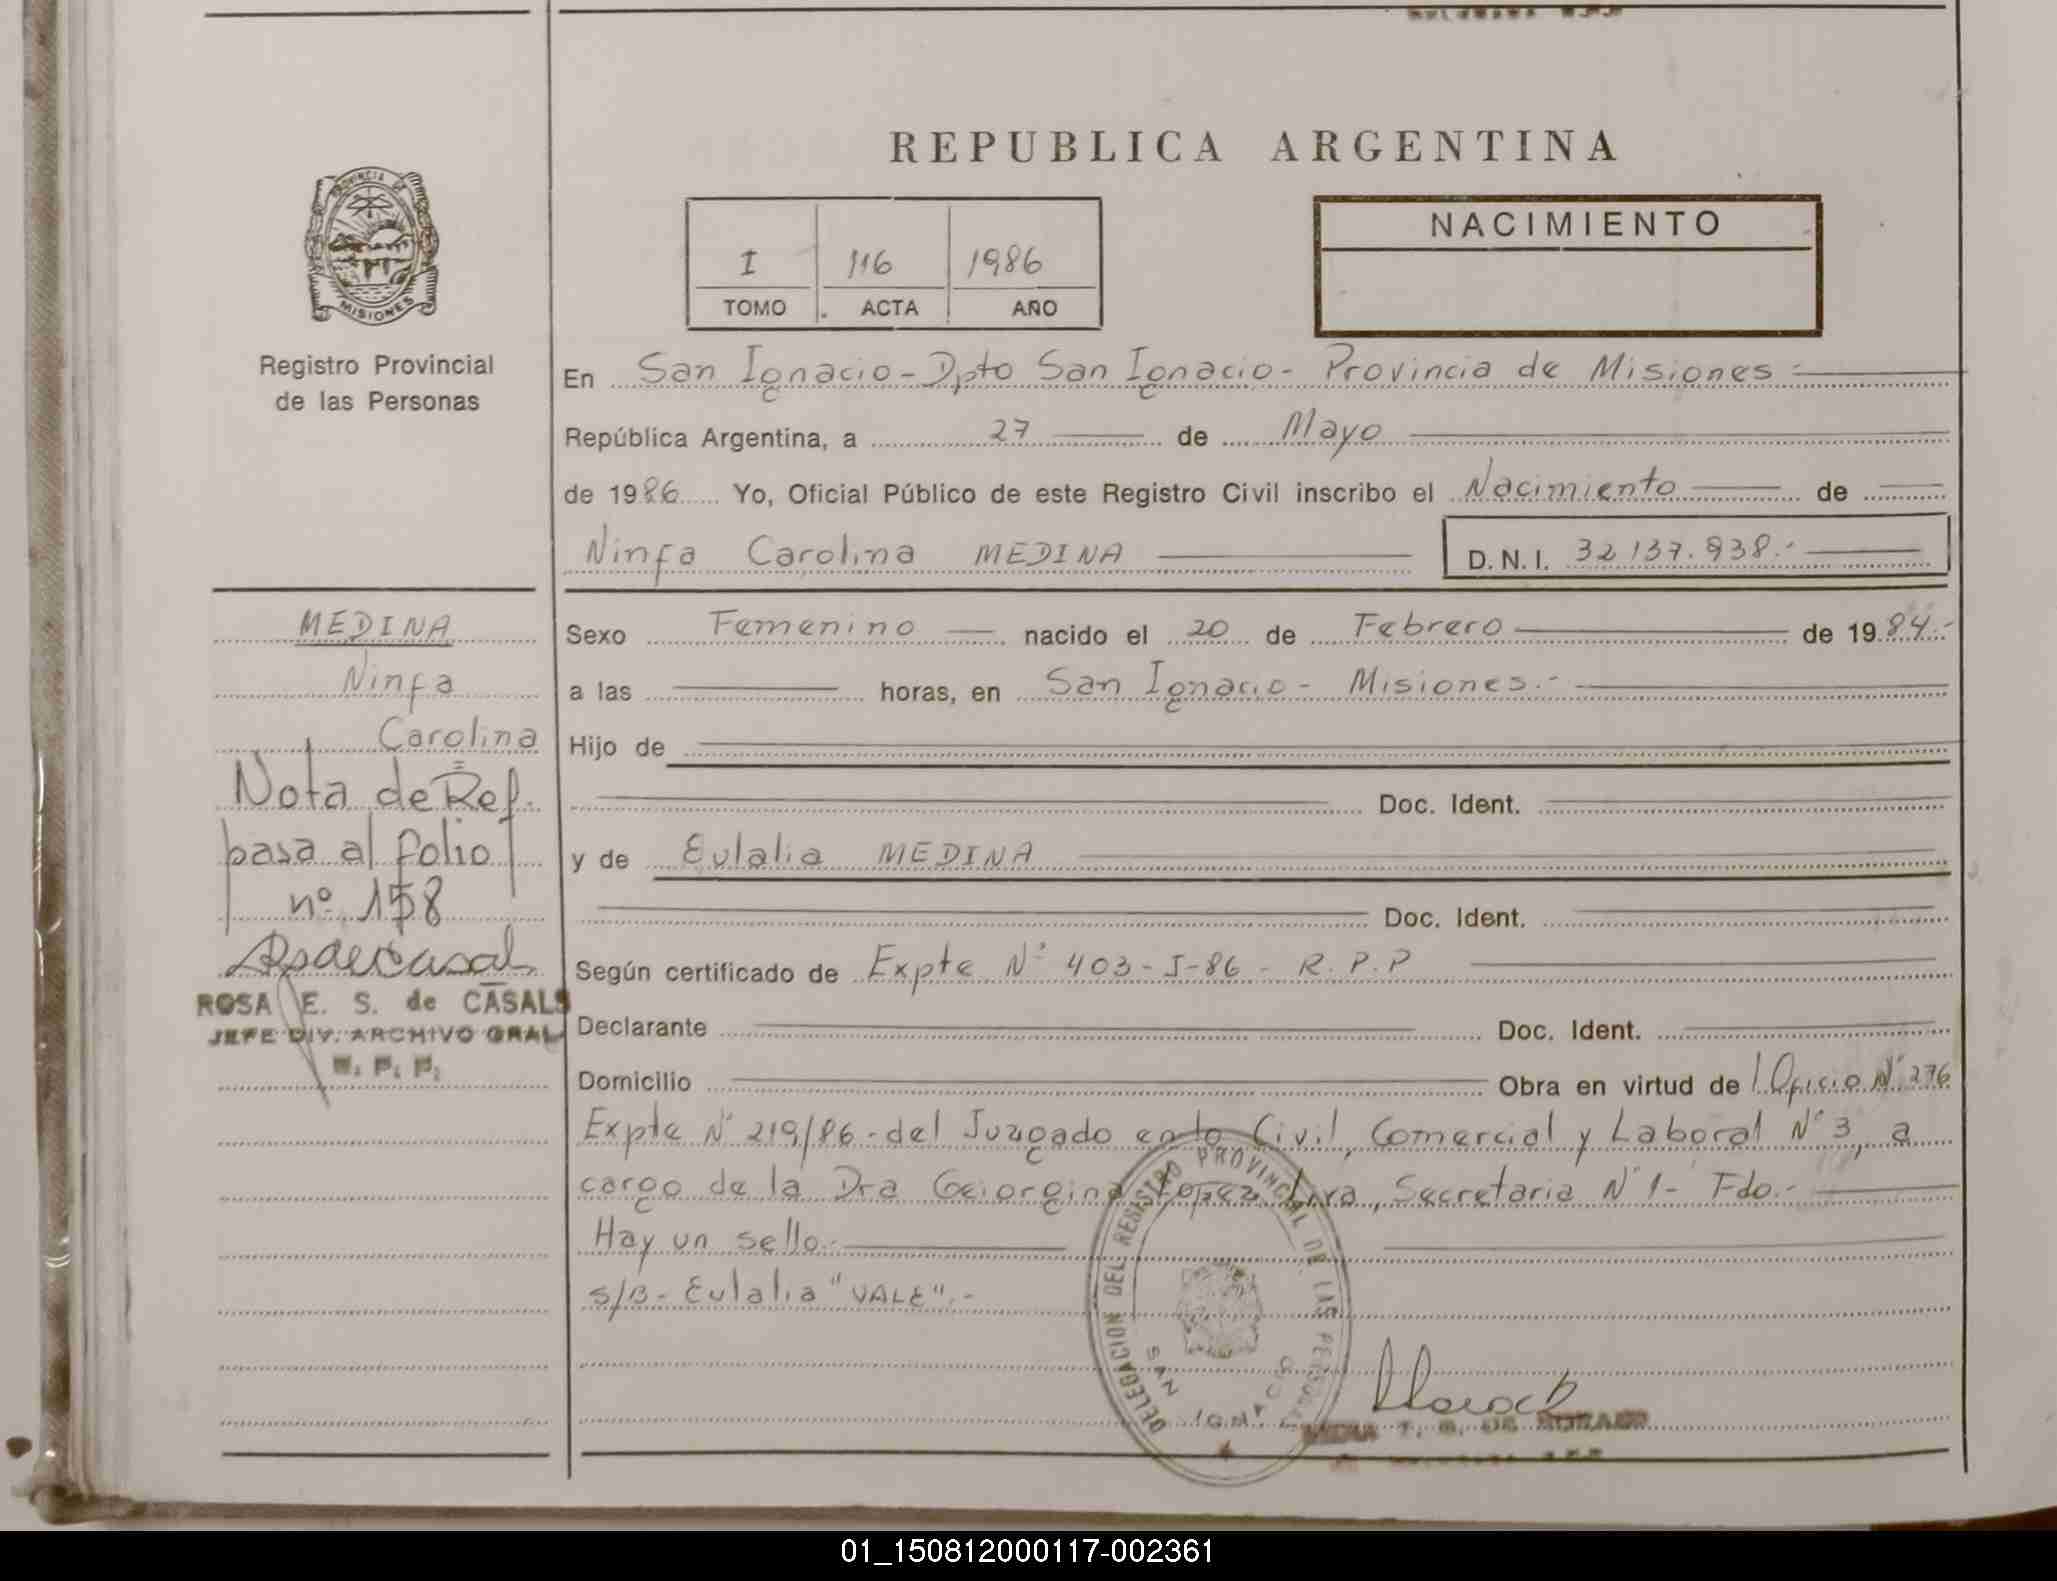 REPUBLICA ARGENTINA
PROVINCIA DE
MISIONES
Registro Provincial
de las Personas
I 116 1986
TOMO ACTA AÑO
NACIMIENTO
En San Ignacio - Dpto San Ignacio - Provincia de Misiones -
República Argentina, a 27 de Mayo
de 1986 Yo, Oficial Público de este Registro Civil inscribo el Nacimiento de
Ninfa Carolina MEDINA D. N. I. 32.137.938.-
MEDINA
Ninfa
Carolina
Nota de Ref.
pasa al folio
nº 158
ROSA E. S. de CASALS
JEFE DIV. ARCHIVO GRAL
R. P. P.
Sexo Femenino nacido el 20 de Febrero de 1984.-
a las horas, en San Ignacio - Misiones.-
Hijo de
Doc. Ident.
y de Eulalia MEDINA
Doc. Ident.
Según certificado de Expte Nº 403-I-86 - R.P.P
Declarante Doc. Ident.
Domicilio Obra en virtud de Oficio Nº 276
Expte Nº 219/86 - del Juzgado en lo Civil, Comercial y Laboral Nº 3, a
cargo de la Dra Geiorgina Lopez Liva, Secretaria Nº 1 - Fdo.-
Hay un sello.-
s/B - Eulalia "VALE".-
DELEGACION DEL REGISTRO PROVINCIAL DE LAS PERSONAS
SAN IGNACIO
T. B. DE
01_150812000117-002361